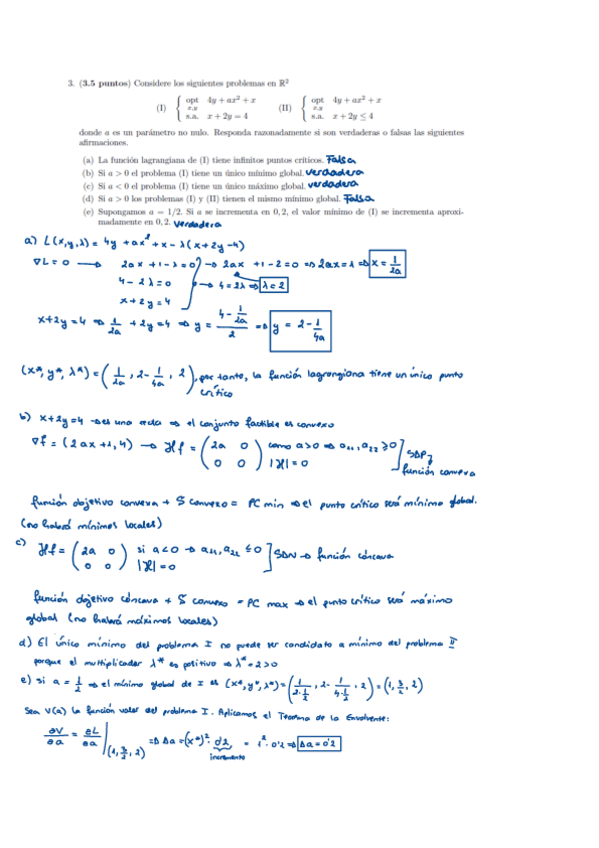 3. (3.5 puntos) Considere los siguientes problemas en ℝ²
(I) { opt x,y 4y + ax² + x s.a. x + 2y = 4 (II) { opt x,y 4y + ax² + x s.a. x + 2y ≤ 4
donde a es un parámetro no nulo. Responda razonadamente si son verdaderas o falsas las siguientes
afirmaciones.
(a) La función lagrangiana de (I) tiene infinitos puntos críticos. Falsa
(b) Si a > 0 el problema (I) tiene un único mínimo global. Verdadera
(c) Si a < 0 el problema (I) tiene un único máximo global. verdadera
(d) Si a > 0 los problemas (I) y (II) tienen el mismo mínimo global. Falsa
(e) Supongamos a = 1/2. Si a se incrementa en 0,2, el valor mínimo de (I) se incrementa aproxi-
madamente en 0,2. Verdadera
a) L(x,y,λ) = 4y + ax² + x - λ(x + 2y - 4)
∇L = 0 → 2ax + 1 - λ = 0 → 2ax + 1 - 2 = 0 ⇒ 2ax = 1 ⇒ x = 1/2a
4 - 2λ = 0 → 4 = 2λ ⇒ λ = 2
x + 2y = 4
x + 2y = 4 ⇒ 1/2a + 2y = 4 ⇒ y = (4 - 1/2a)/2 ⇒ y = 2 - 1/4a
(x*, y*, λ*) = (1/2a, 2 - 1/4a, 2), por tanto, la función lagrangiana tiene un único punto
crítico
b) x + 2y = 4 → es una recta ⇒ el conjunto factible es convexo
∇f = (2ax + 1, 4) → Hf = (2a 0 / 0 0) como a > 0 ⇒ a₁₁, a₂₂ ≥ 0 |H| = 0 ] SDP, función convexa
función objetivo convexa + S convexo = PC min ⇒ el punto crítico será mínimo global.
(no habrá mínimos locales)
c) Hf = (2a 0 / 0 0) si a < 0 ⇒ a₁₁, a₂₂ ≤ 0 |H| = 0 ] SDN → función cóncava
función objetivo cóncava + S convexo = PC max ⇒ el punto crítico será máximo
global (no habrá máximos locales)
d) El único mínimo del problema I no puede ser candidato a mínimo del problema II
porque el multiplicador λ* es positivo ⇒ λ* = 2 > 0
e) si a = 1/2 ⇒ el mínimo global de I es (x*, y*, λ*) = (1/2·1/2, 2 - 1/4·1/2, 2) = (1, 3/2, 2)
Sea V(a) la función valor del problema I. Aplicamos el Teorema de la Envolvente:
∂V/∂a = ∂L/∂a |(1, 3/2, 2) ⇒ Δa = (x*)² · 0'2 = 1² · 0'2 ⇒ Δa = 0'2
incremento